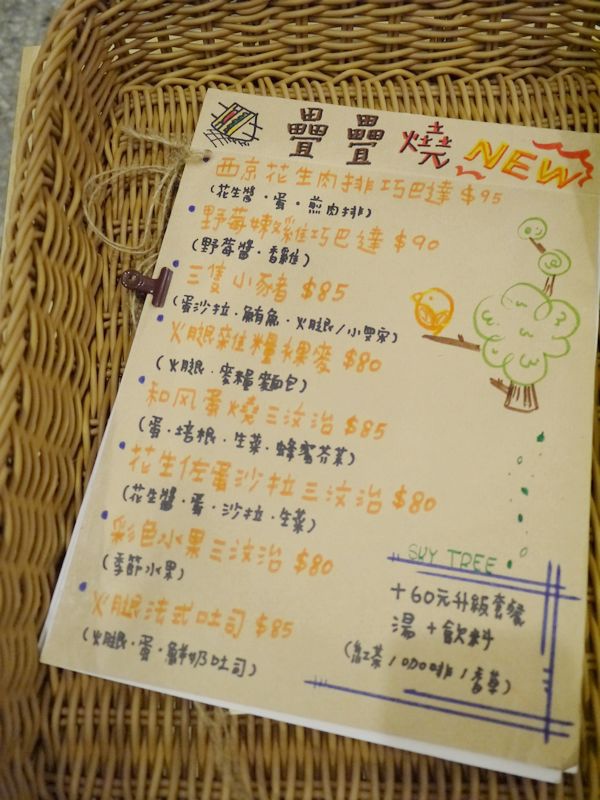 疊疊燒 NEW
西京花生肉排巧巴達 $95
(花生醬·蛋·煎肉排)
野莓辣雞巧巴達 $90
(野莓醬·香雞)
三隻小豬 $85
(蛋沙拉·鮪魚·火腿/小耍宗)
火腿雜糧裸麥 $80
(火腿·麥糧麵包)
和风蛋燒三汶治 $85
(蛋·培根·生菜·蜂蜜芥茉)
花生佐蛋沙拉三汶治 $80
(花生醬·蛋·沙拉·生菜)
彩色水果三汶治 $80
(季節水果)
火腿法式吐司 $85
(火腿·蛋·鮮奶吐司)
SKY TREE
+60元升級套餐
湯+飲料
(紅茶/咖啡/香草)